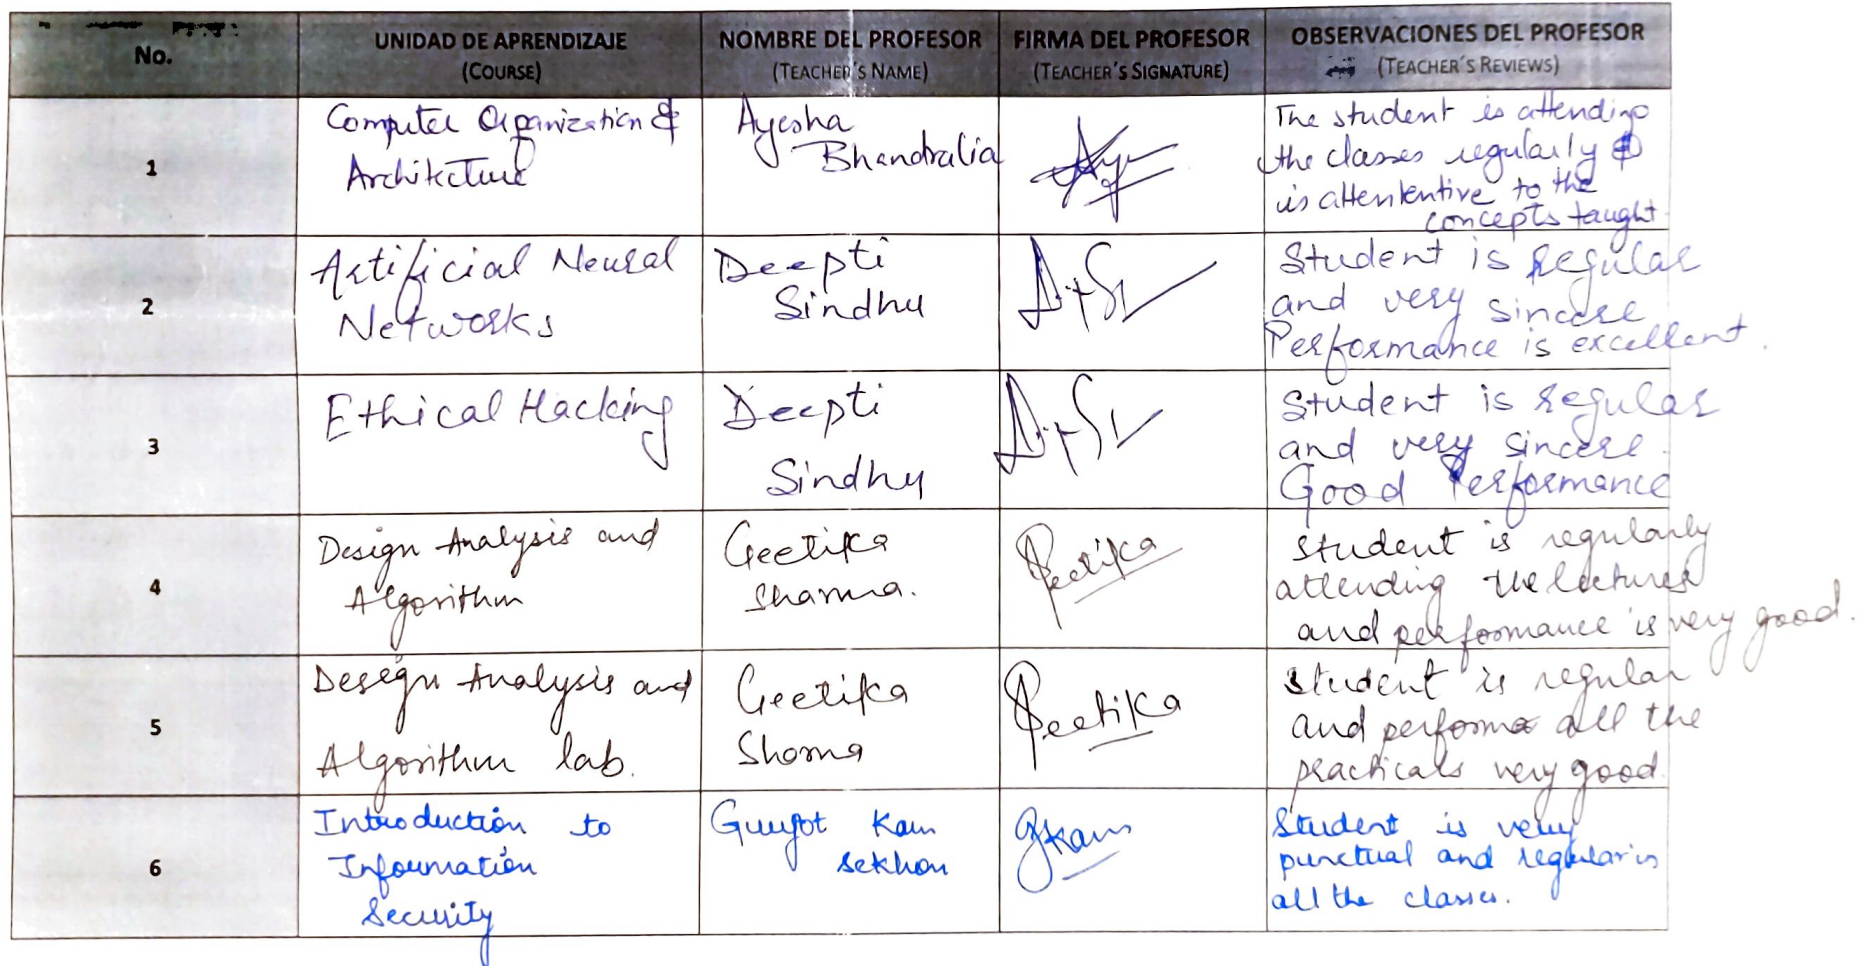 No.
UNIDAD DE APRENDIZAJE
(COURSE)
NOMBRE DEL PROFESOR
(TEACHER´S NAME)
FIRMA DEL PROFESOR
(TEACHER´S SIGNATURE)
OBSERVACIONES DEL PROFESOR
(TEACHER´S REVIEWS)
1
Computer Organization &
Architecture
Ayesha
Bhandralia
The student is attending
the classes regularly &
is attententive to the
concepts taught
2
Artificial Neural
Networks
Deepti
Sindhu
Student is regular
and very sincere
Performance is excellent.
3
Ethical Hacking
Deepti
Sindhu
Student is regular
and very sincere.
Good Performance
4
Design Analysis and
Algorithm
Geetika
Sharma.
Geetika
Student is regularly
attending the lectures
and performance is very good.
5
Design Analysis and
Algorithm lab.
Geetika
Sharma
Geetika
Student is regular
and performs all the
practicals very good.
6
Introduction to
Information
Security
Kaur
Sekhon
gkaur
Student is very
punctual and regular in
all the classes.